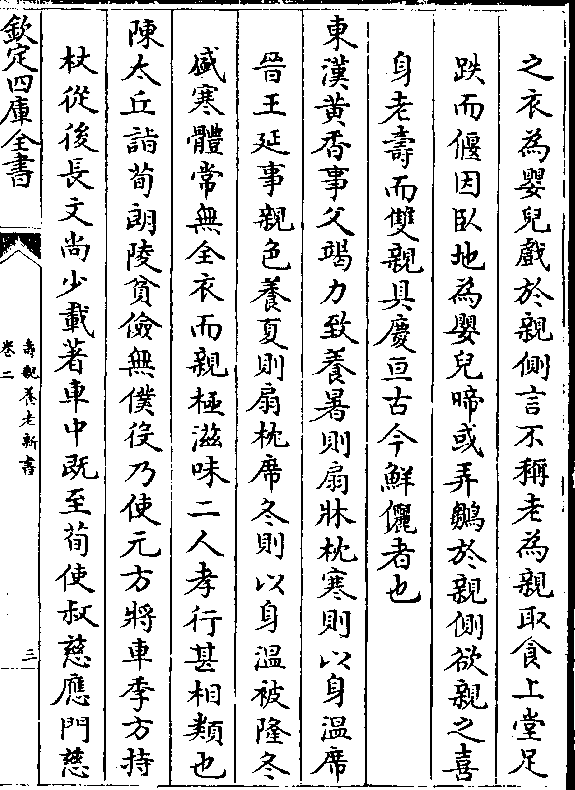 之衣為嬰兒戲於親側言不稱老為親取食上堂足
跌而偃因臥地為嬰兒啼或弄鶵於親側欲親之喜
身老壽而雙親具慶亘古今鮮儷者也
東漢黄香事父竭力致養暑則扇牀枕寒則以身温席
晉王延事親色養夏則扇枕席冬則以身温被隆冬
盛寒體常無全衣而親極滋味二人孝行甚相類也
陳太丘詣荀朗陵貧儉無僕役乃使元方將車季方持
杖從後長文尚少載著車中既至荀使叔慈應門慈
欽定四庫全書
壽親養老新書
卷二
三